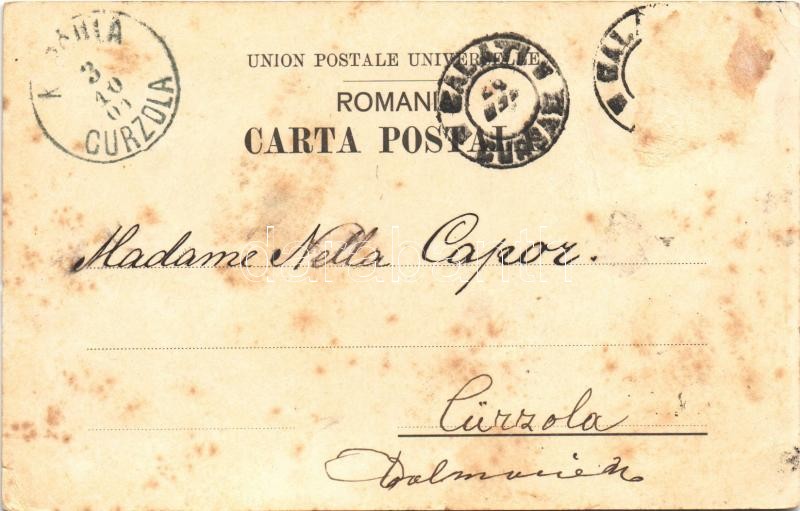 CURZOLA
UNION POSTALE UNIVERSELLE
ROMANI
CARTA POSTAL
GALATI
Madame Nella Capor.
Cürzola
Dalmacien